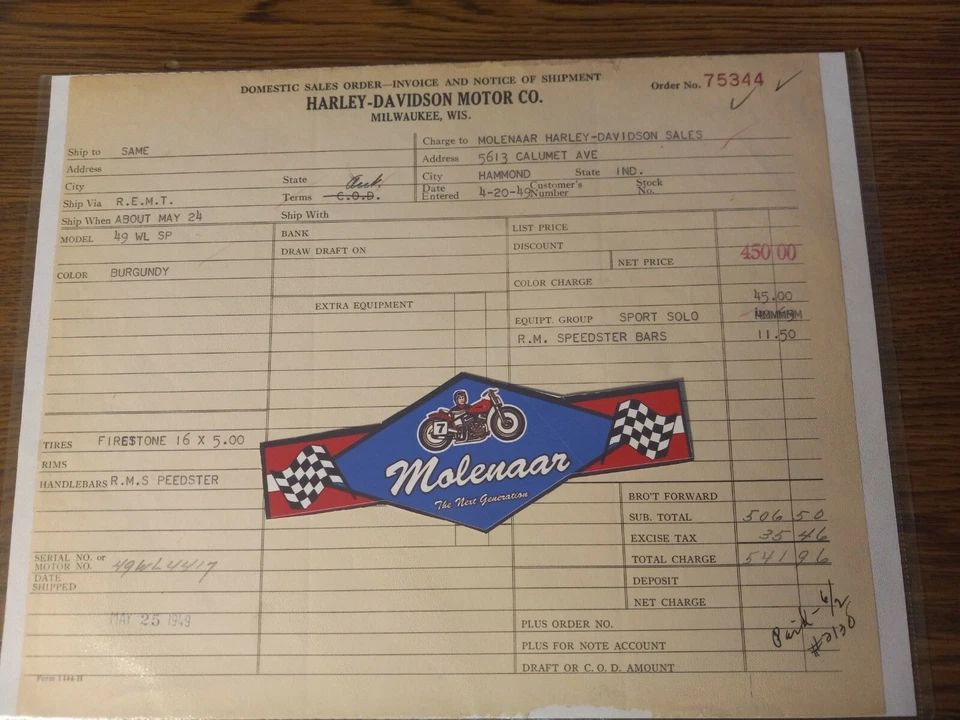 DOMESTIC SALES ORDER—INVOICE AND NOTICE OF SHIPMENT
Order No. 75344
HARLEY-DAVIDSON MOTOR CO.
MILWAUKEE, WIS.
Ship to SAME
Charge to MOLENAAR HARLEY-DAVIDSON SALES
Address
Address 5613 CALUMET AVE
City State
City HAMMOND State IND.
Ship Via R.E.M.T. Terms C.O.D.
Date Entered 4-20-49 Customer's Number Stock No.
Ship When ABOUT MAY 24 Ship With
MODEL 49 WL SP
BANK
LIST PRICE
DRAW DRAFT ON
DISCOUNT
NET PRICE 450 00
COLOR BURGUNDY
COLOR CHARGE
45.00
EXTRA EQUIPMENT
EQUIPT. GROUP SPORT SOLO
R.M. SPEEDSTER BARS 11.50
7
Molenaar
The Next Generation
TIRES FIRESTONE 16 X 5.00
RIMS
HANDLEBARS R.M.S PEEDSTER
BRO'T FORWARD
SUB. TOTAL 506 50
EXCISE TAX 35 46
SERIAL NO. or
MOTOR NO. 49WL4417
TOTAL CHARGE 541 96
DATE
SHIPPED
DEPOSIT
NET CHARGE
MAY 25 1949
PLUS ORDER NO.
Paid - 6/2
#2138
PLUS FOR NOTE ACCOUNT
DRAFT OR C. O. D. AMOUNT